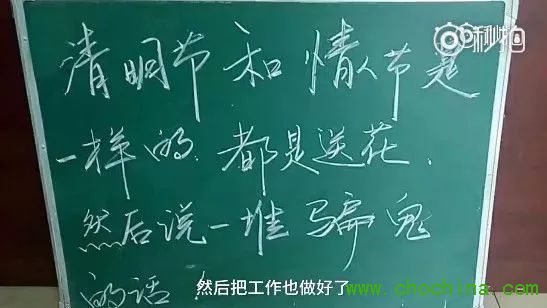 秒拍
清明节和情人节是
一样的.都是送花.
然后说一堆骗鬼
的话!
然后把工作也做好了
www.chochina.com